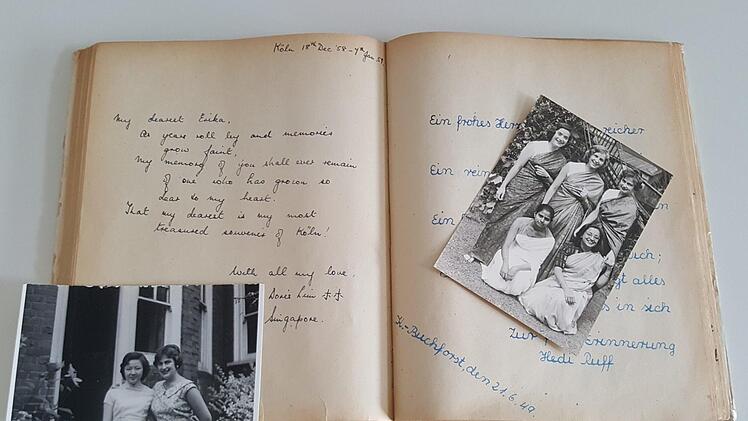 Köln 18th Dec '58 - 7th Jan 59.
My dearest Erika,
As years roll by and memories
grow faint,
My memory of you shall ever remain
of one who has grown so
dear to my heart.
That my dearest is my most
treasured souvenir of Köln!
With all my love,
Doris Lim
Singapore.
Ein frohes Herz reicher
Ein rein
Ein
alles
in sich
Zur Erinnerung
Hedi Ruff
K.-Buchforst, den 21.6.49.